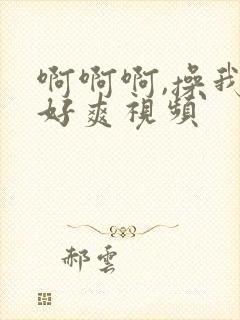 啊啊啊,操我
好爽視頻
郝雲